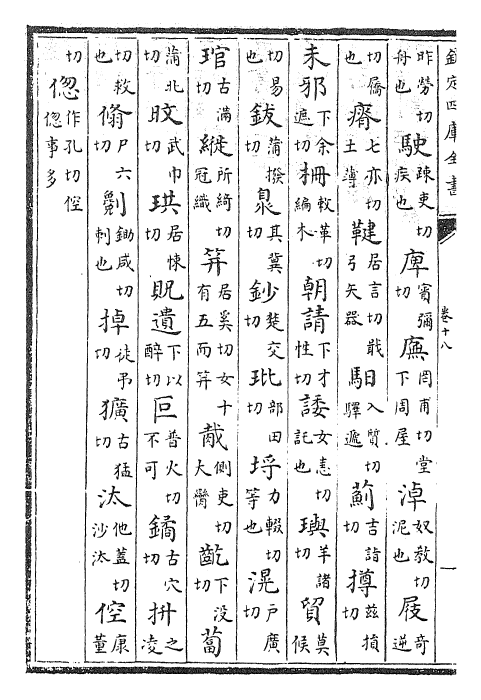 欽定四庫全書 卷十八 一
昨勞切舟也駛疎吏切疾也庳賓彌切廡罔甫切堂下周屋淖奴教切泥也屐奇逆
切屩也瘠七亦切土薄鞬居言切戢弓矢器馹入質切驛遞薊吉詣切撙茲損切
耒邪下余遮切柵敕革切編木朝請下才性切諉女恚切託也璵羊諸切貿莫候
切易也鈸蒲撥切臮其冀切鈔楚交切玭部田切埒力輟切等也滉户廣切
琯古滿切縰所綺切冠織笄居奚切女十有五而笄胾側吏切大臠齕下没切蔔
蒲北切旼武巾切珙居悚切貺遺下以醉切叵普火切不可鐍古穴切抍之凌
切救也翛尸六切劖鋤咸切刺也掉徒弔切獷古猛切汰他蓋切沙汰倥康董
切偬作孔切倥偬事多